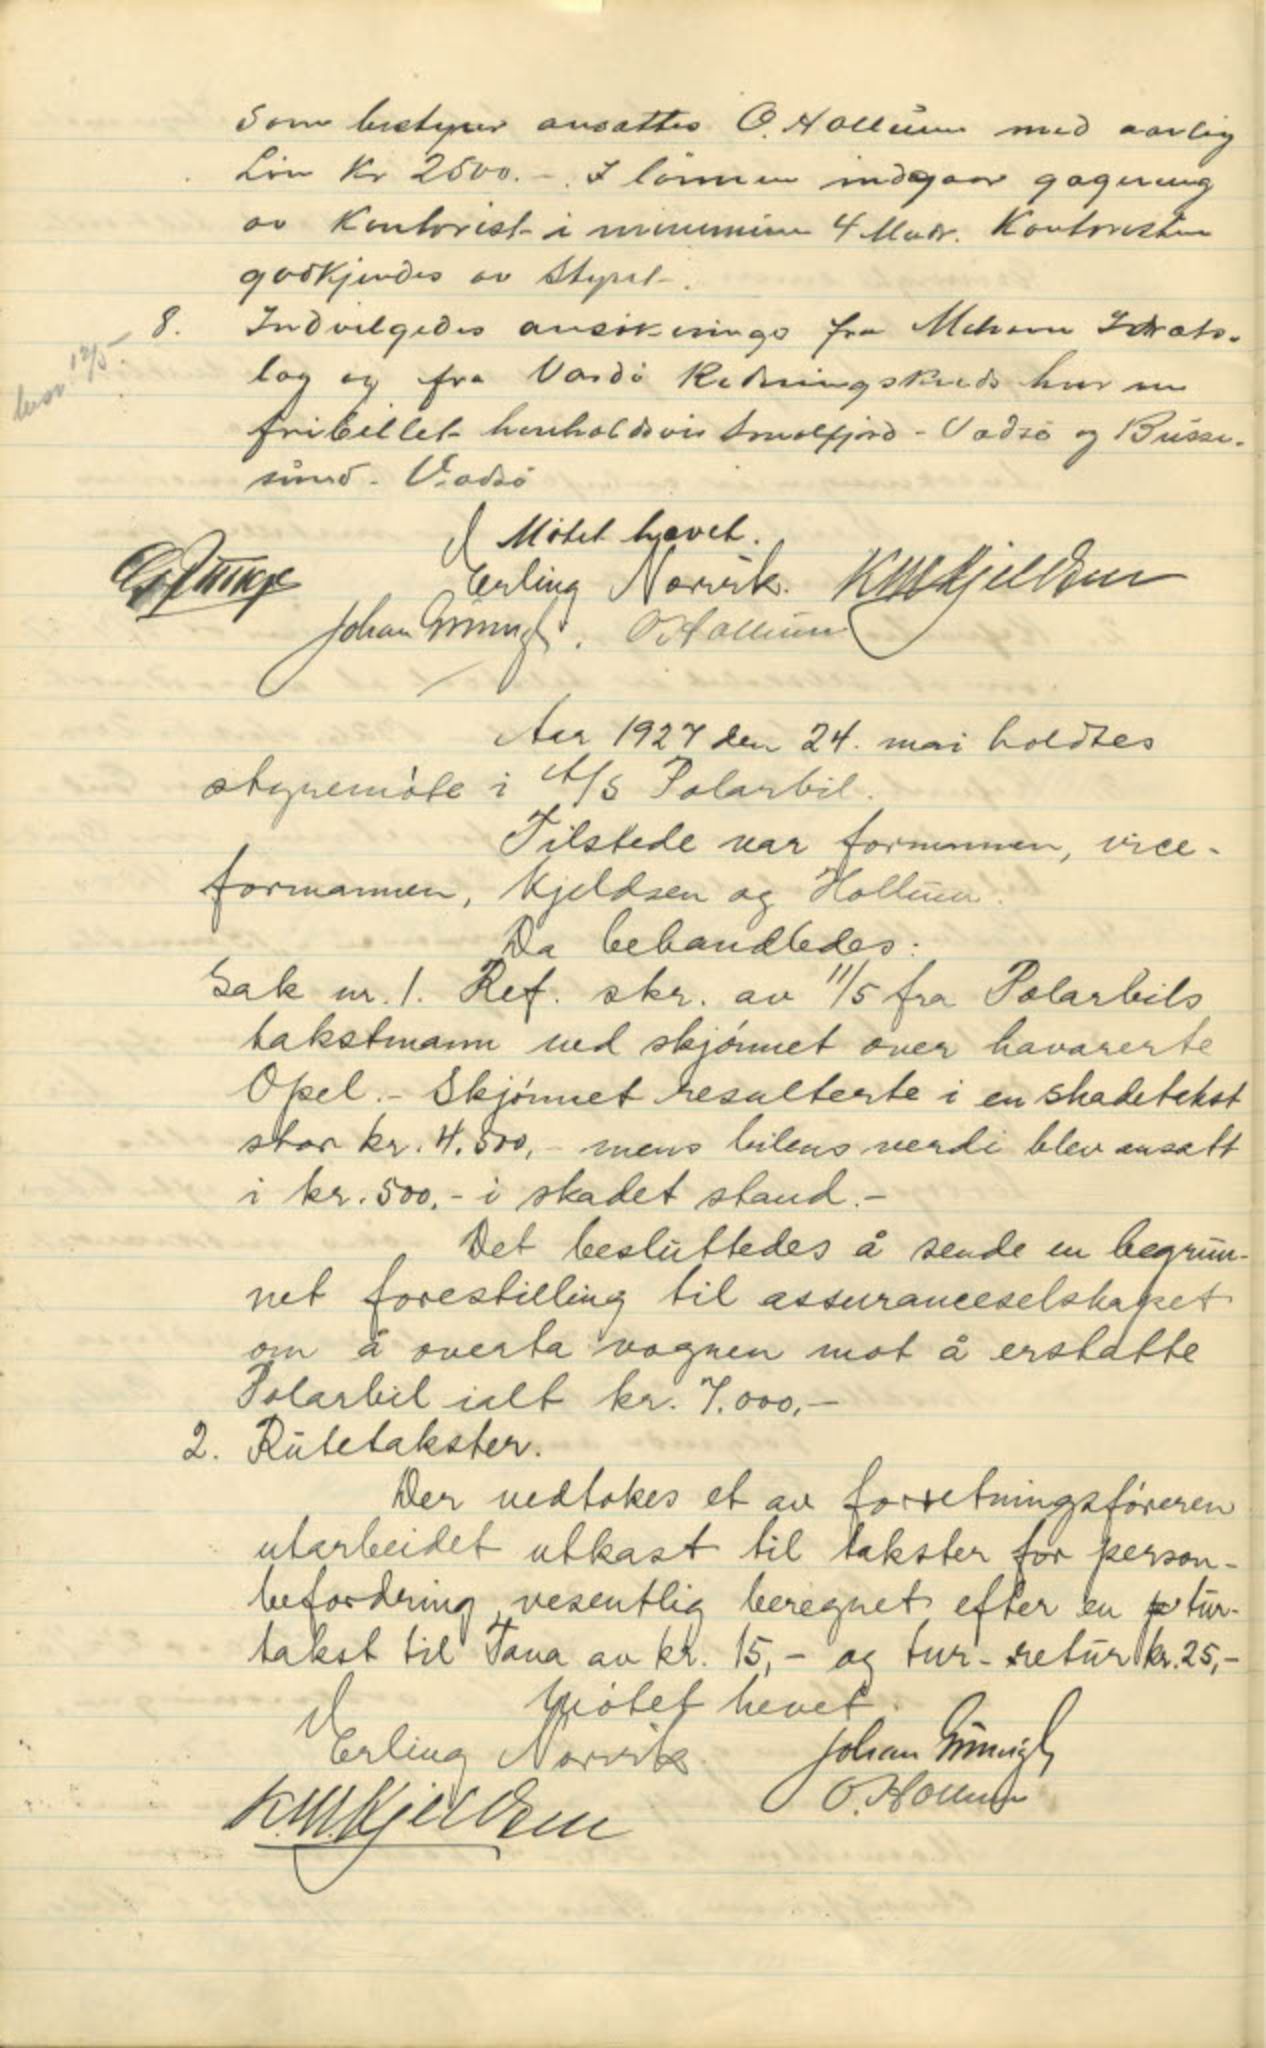 Som bestyrer ansattes O. Hollum med aarlig
Løn Kr 2500.-. I lönnen indgaar gagering
av Kontorist i minimum 4 Mndr. Kontoristen
godkjendes av Styret.
8. Indvilgedes ansökninge fra Mehavn Idræts-
lag og fra Vardö Redningskreds hver en
fribillet henholdsvis Smalfjord - Vadsö og Busse-
sund - Vadsö
besv. 12/5.
Mötet hævet.
Erling Norvik. K.M. Kjeldsen
Johan Grünigh. O. Hollum
Aar 1927 den 24. mai holdtes
styremöte i A/S Polarbil.
Tilstede var formannen, vice-
formannen, Kjeldsen og Hollum.
Da behandledes:
Sak nr. 1. Ref. skr. av 11/5 fra Polarbils
takstmann ved skjönnet over havarerte
Opel.- Skjönnet resulterte i en skadetakst
stor kr. 4.500,- mens bilens verdi blev ansatt
i kr. 500,- i skadet stand.-
Det besluttedes å sende en begrun-
net forestilling til assuranceselskapet
om å overta vognen mot å erstatte
Polarbil ialt kr. 7.000,-
2. Rutetakster.
Der vedtokes et av forretningsföreren
utarbeidet utkast til takster for person-
befordring, vesentlig beregnet efter en tur-
takst til Tana av kr. 15,- og tur-retur kr. 25,-
Mötet hevet.
Erling Norvik. Johan Grünigh
K.M. Kjeldsen O. Hollum